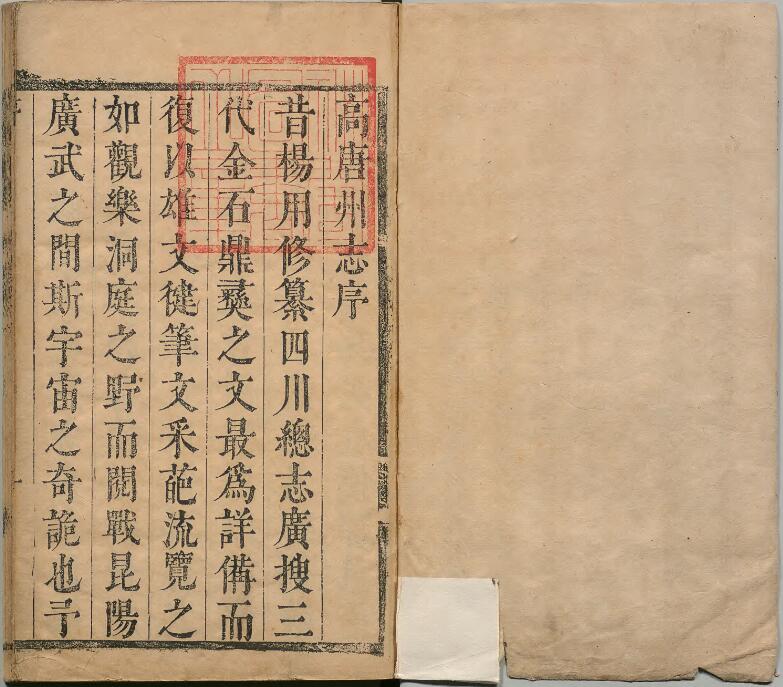 高唐州志序
昔楊用修纂四川總志廣搜三
代金石鼎彞之文最爲詳備而
復以雄文健筆文采葩流覽之
如觀樂洞庭之野而閱戰昆陽
廣武之間斯宇宙之奇詭也予